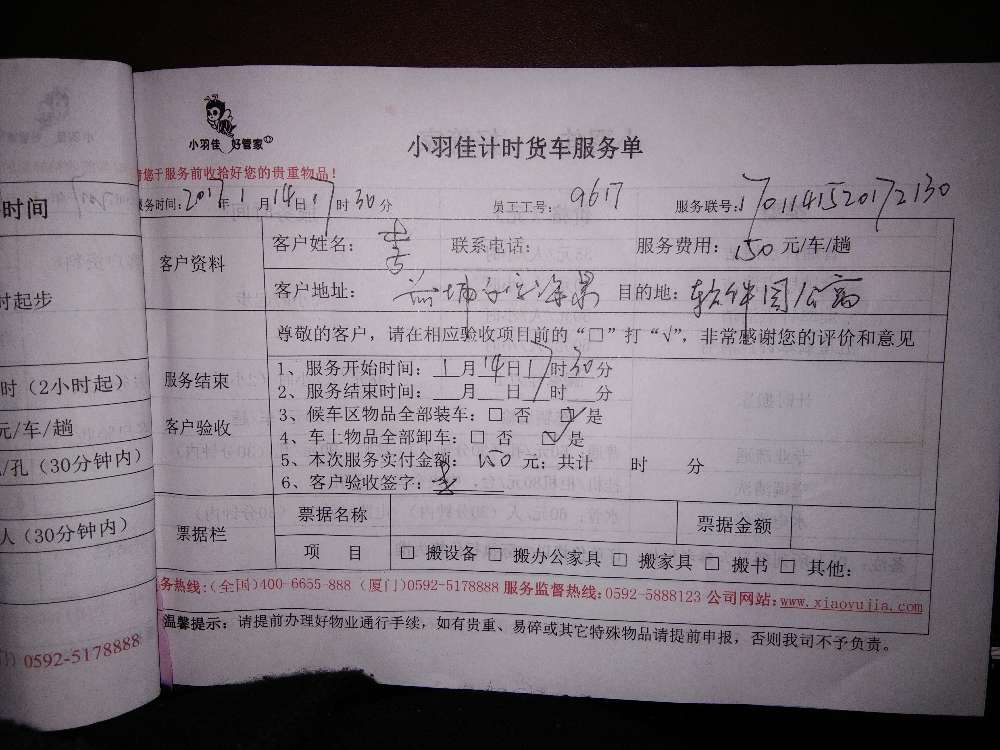 小羽佳 好管家
小羽佳计时货车服务单
请您于服务前收拾好您的贵重物品！
服务时间：2017年1月14日17时30分 员工工号：9617 服务联号：1701141520172130
客户资料
客户姓名： 联系电话： 服务费用：150元/车/趟
客户地址： 海景 目的地：软件园公寓
尊敬的客户，请在相应验收项目前的“□”打“√”，非常感谢您的评价和意见
服务结束
客户验收
1、服务开始时间：1月14日17时30分
2、服务结束时间：___月___日___时___分
3、候车区物品全部装车：□ 否 ☑ 是
4、车上物品全部卸车：□ 否 ☑ 是
5、本次服务实付金额：150元；共计 时 分
6、客户验收签字：
票据栏
票据名称 票据金额
项 目 □ 搬设备 □ 搬办公家具 □ 搬家具 □ 搬书 □ 其他：
服务热线：(全国)400-6655-888 (厦门)0592-5178888 服务监督热线：0592-5888123 公司网站：www.xiaoyujia.com
温馨提示：请提前办理好物业通行手续，如有贵重、易碎或其它特殊物品请提前申报，否则我司不予负责。
时间
时起步
时（2小时起）
元/车/趟
/孔（30分钟内）
人（30分钟内）
0592-5178888